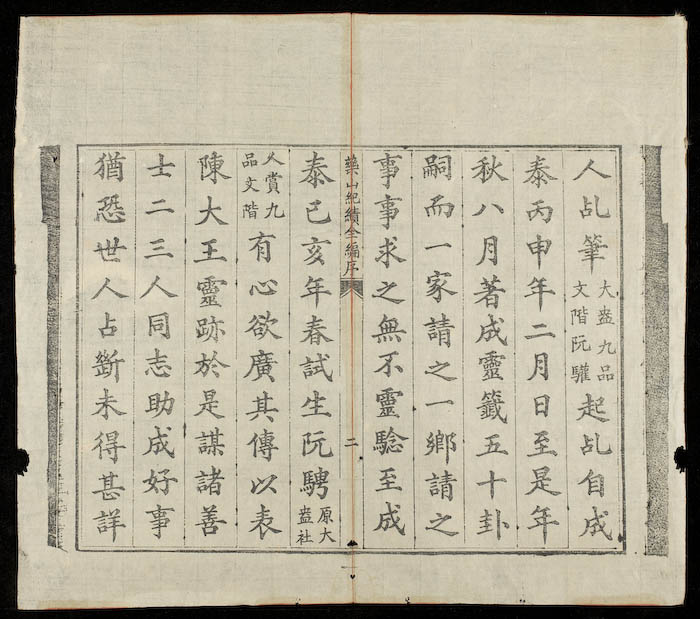 人乩筆大盎九品文階阮驩起乩自成
泰丙申年二月日至是年
秋八月著成靈籤五十卦
嗣而一家請之一鄉請之
事事求之無不靈驗至成
藥山紀績全編序 二
泰己亥年春試生阮騁原大盎社
人賞九品文階有心欲廣其傳以表
陳大王靈跡於是謀諸善
士二三人同志助成好事
猶恐世人占斷未得甚詳